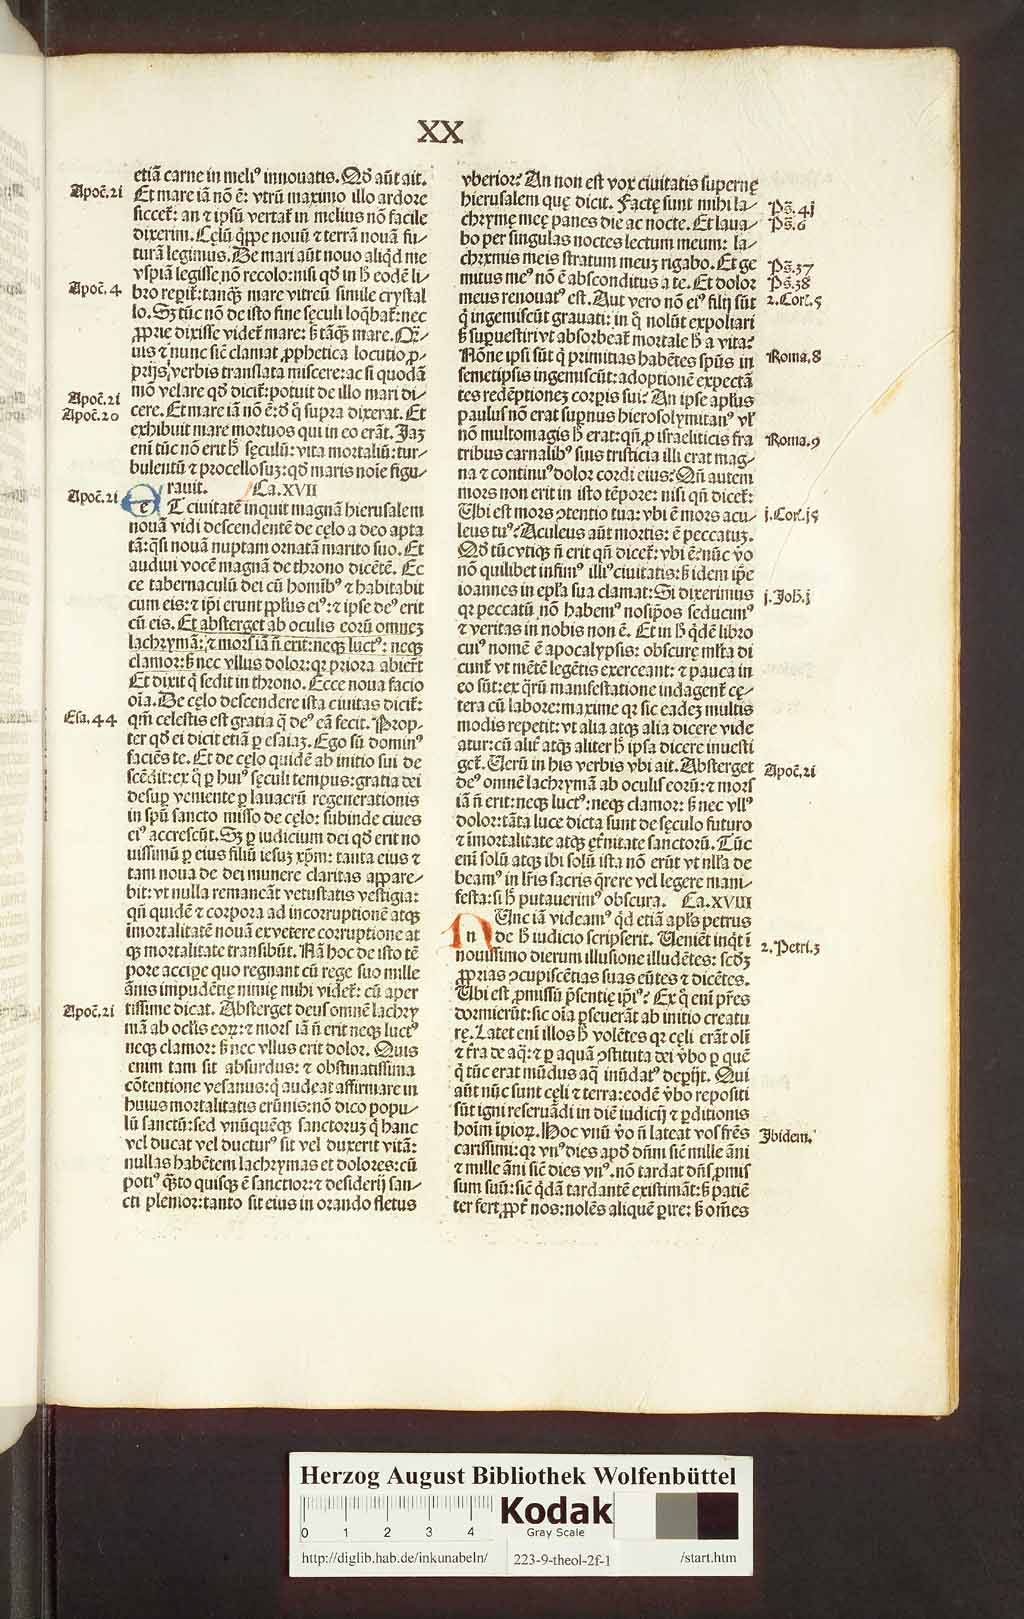 XX
etiā carne in meliꝰ innouatis. Qd̄ aūt ait.
Apoc̄. 2i
Et mare iā nō ē: vtrū maximo illo ardore
siccet̃: an ⁊ ip̄sū vertat̃ in melius nō facile
dixerim. Cęlū q̈ppe nouū ⁊ terrā nouā fu⸗
turā legimus. De mari aūt nouo aliqd̄ me
vspiā legisse nō recolo: nisi qd̄ in h̄ eodē li⸗
Apoc̄. 4
bro reꝑit̃: tanqꝫ mare vitreū simile crystal
lo. Sꝫ tūc nō de isto fine sęculi loq̄bat̃: nec
ꝓprie dixisse videt̃ mare: s̄ tāqꝫ mare. Qꝫ⸗
uis ⁊ nunc sic̄ clamat ꝓphetica locutio ꝓ⸗
prijs verbis translata miscere: ac si quodā
mō velare qd̄ dicit̃: potuit de illo mari di⸗
Apoc̄. 2i
cere. Et mare iā nō ē: d̄ q̄ supra dixerat. Et
Apoc̄. 20
exhibuit mare mortuos qui in eo erāt. Jaꝫ
eni tūc nō erit h̄ sęculū: vita mortaliū: tur⸗
bulentū ⁊ procellosuꝫ: qd̄ maris noīe figu⸗
rauit. Ca. XVII
Apoc̄. 2i
eT ciuitatē inquit magnā hierusalem
nouā vidi descendentē de cęlo a deo apta
tā: q̄si nouā nuptam ornatā marito suo. Et
audiui vocē magnā de throno dicētē. Ec
ce tabernaculū dei cū homībꝰ ⁊ habitabit
cum eis: ⁊ ip̄i erunt ꝓpl̄us eiꝰ: ⁊ ipse deꝰ erit
cū eis. Et absterget ab oculis eorū omneꝫ
lachrymā: ⁊ mors iā n̄ erit: neqꝫ luctꝰ: neqꝫ
clamor: s̄ nec vllus dolor: qꝛ priora abier̄t
Et dixit q̄ sedit in throno. Ecce noua facio
oīa. De cęlo descendere ista ciuitas dicit̃:
Esa. 44
qm̄ celestis est gratia q̄ deꝰ eā fecit. Prop⸗
ter qd̄ ei dicit etiā ꝑ esaiaꝫ. Ego sū dominꝰ
faciēs te. Et de cęlo quidē ab initio sui de
scēdit: ex q̄ ꝑ huiꝰ sęculi tempus: gratia dei
desuꝑ veniente ꝑ lauacrū regenerationis
in sp̄u sancto misso de cęlo: subinde ciues
eiꝰ accrescūt. Sꝫ ꝑ iudicium dei qd̄ erit no
uissimū ꝑ eius filiū iesuꝫ xp̄m: tanta eius ⁊
tam noua de dei munere claritas appare⸗
bit: vt nulla remaneāt vetustatis vestigia:
qn̄ quidē ⁊ corpora ad incorruptionē atqꝫ
īmortalitatē nouā ex vetere corruptione at
qꝫ mortalitate transibūt. Nā hoc de isto tē
pore accipe quo regnant cū rege suo mille
ānis impudētię nimię mihi videt̃: cū aper
Apoc̄. 2i
tissime dicat. Absterget deus omnē lachry
mā ab oclīs eoꝝ: ⁊ mors iā n̄ erit neqꝫ luctꝰ
neqꝫ clamor: s̄ nec vllus erit dolor. Quis
enim tam sit absurdus: ⁊ obstinatissima
cōtentione vesanus: q̄ audeat affirmare in
huius mortalitatis erūnis: nō dico popu⸗
lū sanctū: sed vnūquēqꝫ sanctoruꝫ q̄ hanc
vel ducat vel ducturꝰ sit vel duxerit vitā:
nullas habētem lachrymas et dolores: cū
potiꝰ q̄sto quisqꝫ ē sanctior: ⁊ desiderij san⸗
cti plenior: tanto sit eius in orando fletus
vberior? An non est vox ciuitatis supernę
hierusalem quę dicit. Factę sunt mihi la⸗
Ps̄. 4j
chrymę meę panes die ac nocte. Et laua⸗
Ps̄. 6
bo per singulas noctes lectum meum: la⸗
chrymis meis stratum meuꝫ rigabo. Et ge
Ps̄. 37
mitus meꝰ nō ē absconditus a te. Et dolor
Ps̄. 38
meus renouatꝰ est. Aut vero nō eiꝰ filij sūt
2. Cor̄. 5
q̄ ingemiscūt grauati: in q̄ nolūt expoliari
s̄ suꝑuestiri vt absorbeat̃ mortale h̄ a vita?
Nōne ipsi sūt q̄ primitias habētes sp̄us in
Roma. 8
semetipsis ingemiscūt: adoptionē expectā
tes redēptionēꝫ corpis sui? An ipse ap̄lus
paulus nō erat suꝑnus hierosolymitanꝰ vl̄
nō multomagis h̄ erat: qn̄ ꝓ israeliticis fra
Roma. 9
tribus carnalibꝰ suis tristicia illi erat mag⸗
na ⁊ continuꝰ dolor cordi eius? Qn̄ autem
mors non erit in isto tēpore: nisi qn̄ dicet̃:
Ubi est mors ꝯtentio tua: vbi ē mors acu⸗
j. Cor̄. j5
leus tuꝰ? Aculeus aūt mortis: ē peccatuꝫ.
Qd̄ tūc vtiqꝫ n̄ erit qn̄ dicet̃: vbi ē? nūc v̄o
nō quilibet infimꝰ illiꝰ ciuitatis: s̄ idem ip̄e
ioannes in epl̄a sua clamat: Si dixerimus
j. Joh̄. j
qꝛ peccatū nō habemꝰ nosip̄os seducimꝰ
⁊ veritas in nobis non ē. Et in h̄ q̄dē libro
cuiꝰ nomē ē apocalypsis: obscurę ml̄ta di
cunt̃ vt mētē legētis exerceant: ⁊ pauca in
eo sūt: ex q̄rū manifestatione indagent̃ cę⸗
tera cū labore: maxime qꝛ sic eadeꝫ multis
modis repetit: vt alia atqꝫ alia dicere vide
atur: cū alit̃ atqꝫ aliter h̄ ipsa dicere inuesti
get̃. Uerū in his verbis vbi ait. Absterget
Apoc̄. 2i
deꝰ omnē lachrymā ab oculis eorū: ⁊ mors
iā n̄ erit: neqꝫ luctꝰ: neqꝫ clamor: s̄ nec vllꝰ
dolor: tāta luce dicta sunt de sęculo futuro
⁊ īmortalitate atqꝫ et̃nitate sanctorū. Tūc
eni solū atqꝫ ibi solū ista nō erūt vt nl̄la de
beamꝰ in lr̄is sacris q̄rere vel legere mani⸗
festa: si h̄ putauerimꝰ obscura. Ca. XVIII
nUnc iā videamꝰ qd̄ etiā apl̄s petrus
de h̄ iudicio scripserit. Ueniēt inq̄t ī
2. Petri. 3
nouissimo dierum illusione illudētes: scd̄ꝫ
ꝓprias ꝯcupiscētias suas eūtes ⁊ dicētes.
Ubi est ꝓmissū p̄sentię ip̄iꝰ? Ex q̄ eni pr̄es
dormierūt: sic oīa ꝑseuerāt ab initio creatu
rę. Latet eni illos h̄ volētes qꝛ cęli erāt olī
⁊ t̄ra de aq̄: ⁊ ꝑ aquā ꝯstituta dei v̄bo ꝑ quē
q̄ tūc erat mūdus aq̄ inūdatꝰ deꝑijt. Qui
aūt nūc sunt cęli ⁊ terra: eodē v̄bo repositi
sūt igni reseruādi in diē iudicij ⁊ ꝑditionis
hoīm īpioꝝ. Hoc vnū v̄o n̄ lateat vos fr̄es
Ibidem.
carissimi: qꝛ vnꝰ dies apd̄ dn̄m sic̄ mille āni
⁊ mille āni sic̄ dies vnꝰ. nō tardat dn̄s ꝓmis
sum suū: sic̄ q̄dā tardantē existimāt: s̄ patiē
ter fert ꝓpt̃ nos: nolēs aliquē ꝑire: s̄ om̄es
Herzog August Bibliothek Wolfenbüttel
0 1 2 3 4
Kodak
Gray Scale
http://diglib.hab.de/inkunabeln/ 223-9-theol-2f-1 /start.htm